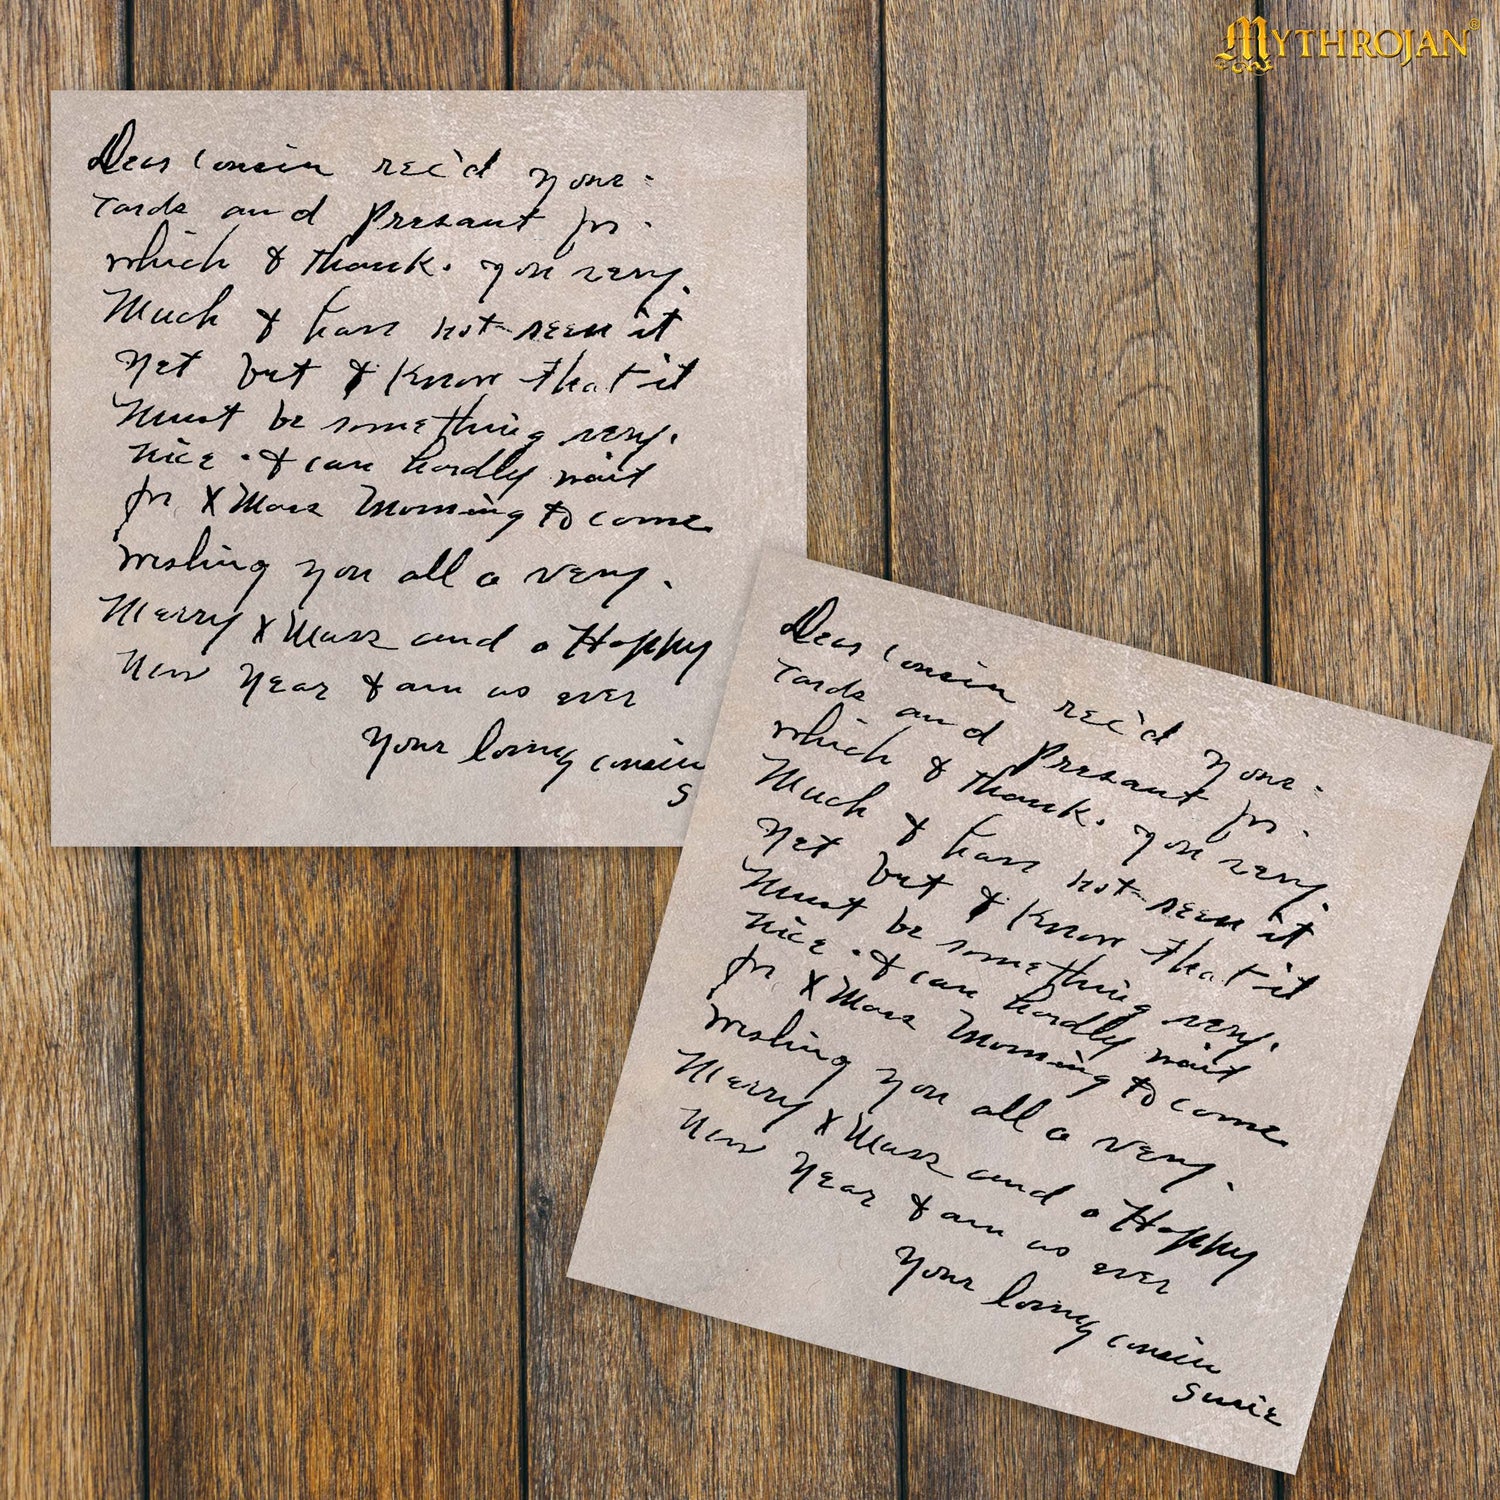 MYTHROJAN©
Dear Cousin rec'd your
Cards and Presant for
which I thank you very
Much I have not seen it
yet but I know that it
Must be something very
nice. I can hardly wait
for XMass Morning to come
wishing you all a very
Merry XMass and a Happy
New Year I am as ever
your loving cousin
S
Dear Cousin rec'd your
Cards and Presant for
which I thank you very
Much I have not seen it
yet but I know that it
Must be something very
nice. I can hardly wait
for XMass Morning to come
wishing you all a very
Merry XMass and a Happy
New Year I am as ever
your loving cousin
Susie